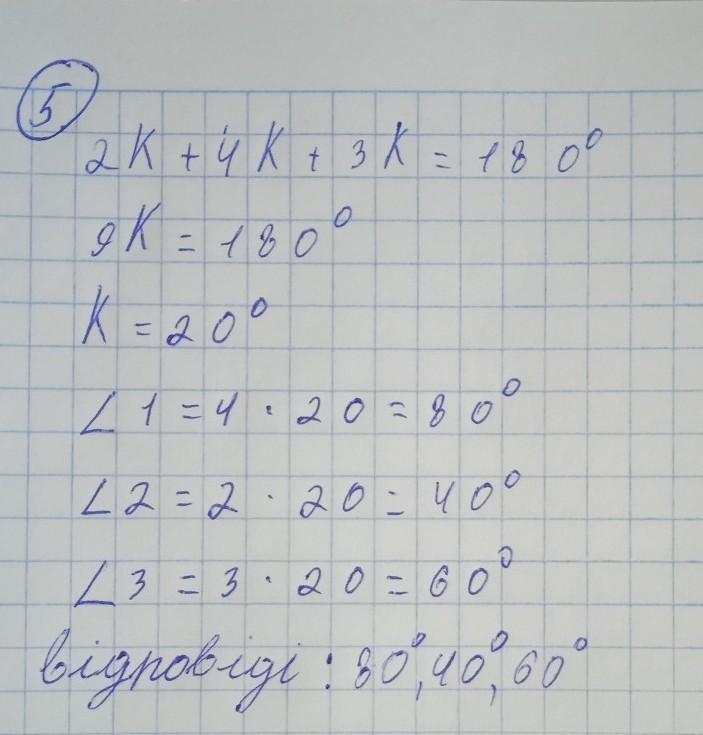 5
2K + 4K + 3K = 180°
9K = 180°
K = 20°
∠1 = 4 · 20 = 80°
∠2 = 2 · 20 = 40°
∠3 = 3 · 20 = 60°
відповіді : 80°, 40°, 60°